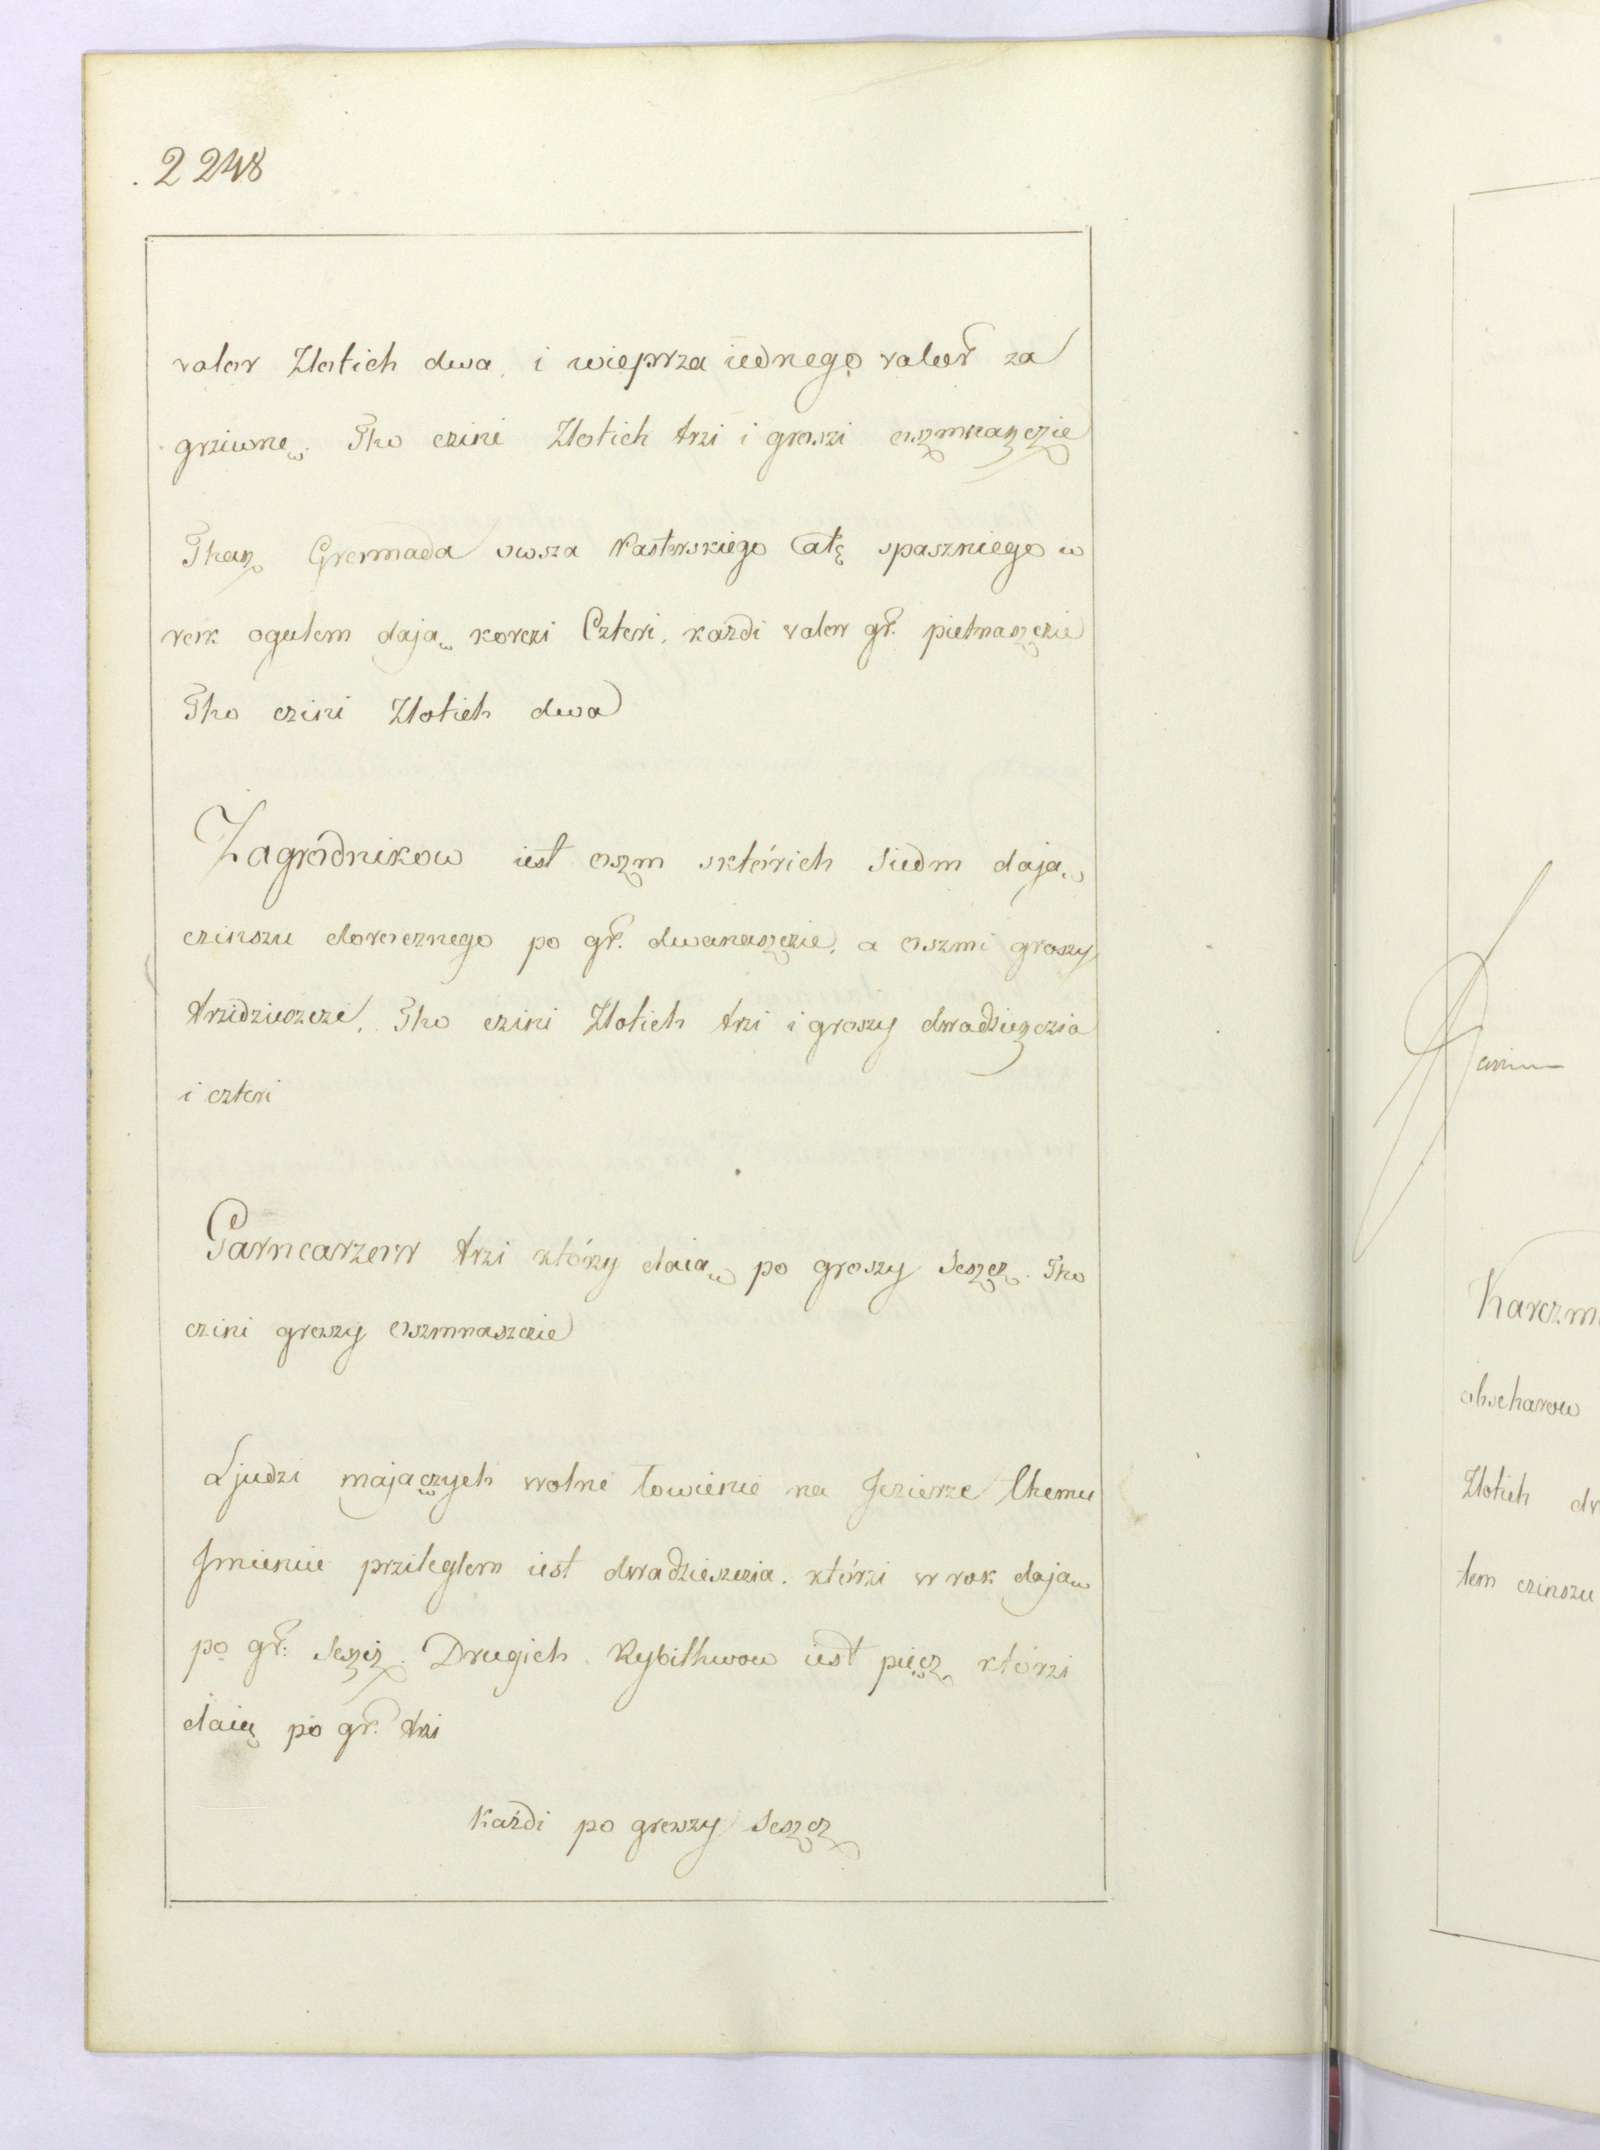 2248
valor Zlotich dwa, i wieprza iednego valor za
grziwne. Tho czini Zlotich trzi i groszi oszmnaszczie
Thasz Gromada owsza Pastorskiego Całę spaszniego w
rok ogulem daja korczi Czteri, każdi valor gr. pietnaszczie
Tho czini Zlotich dwa
Zagrodnikow iest oszm sktórich siedm daja
czinszu dorocznego po gr. dwanaszczie, a oszmi groszy
trzidzieszczi, Tho czini Zlotich trzi i groszy dwadzieszczia
i czteri
Garncarzow trzi którzy daia po groszy seszcz. Tho
czini groszy oszmnaszczie
Ljudzi majaczych wolne łowienie na Jezierze themu
Jmieniu przileglem iest dwadzieszczia, którzi w rok daja
po gr: seszcz. Drugich Rybithwow iest pięcz którzi
daię po gr. trzi
Każdi po groszy seszcz
Karczm
obscharow
Zlotich dw
tem czinszu